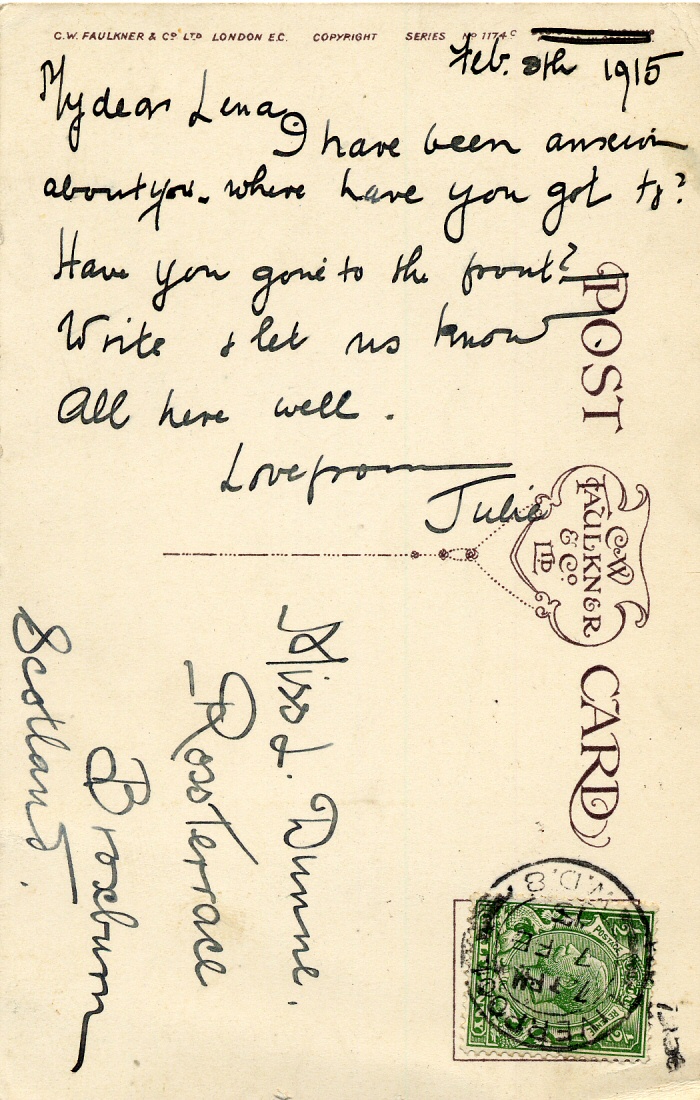 C.W. FAULKNER & Co LTD LONDON E.C. COPYRIGHT SERIES No 1174 C
Feb. 8th 1915
My dear Lena,
I have been anxious
about you. where have you got to?
Have you gone to the front?
Write & let us know
All here well.
Love from
Julie
POST CARD
C.W.
FAULKNER
& Co
LTD
Miss L. Dunne.
Ross Terrace
Broxburn
Scotland.
W.D.8
7 PM
7 FE
15
POSTAGE
REVENUE